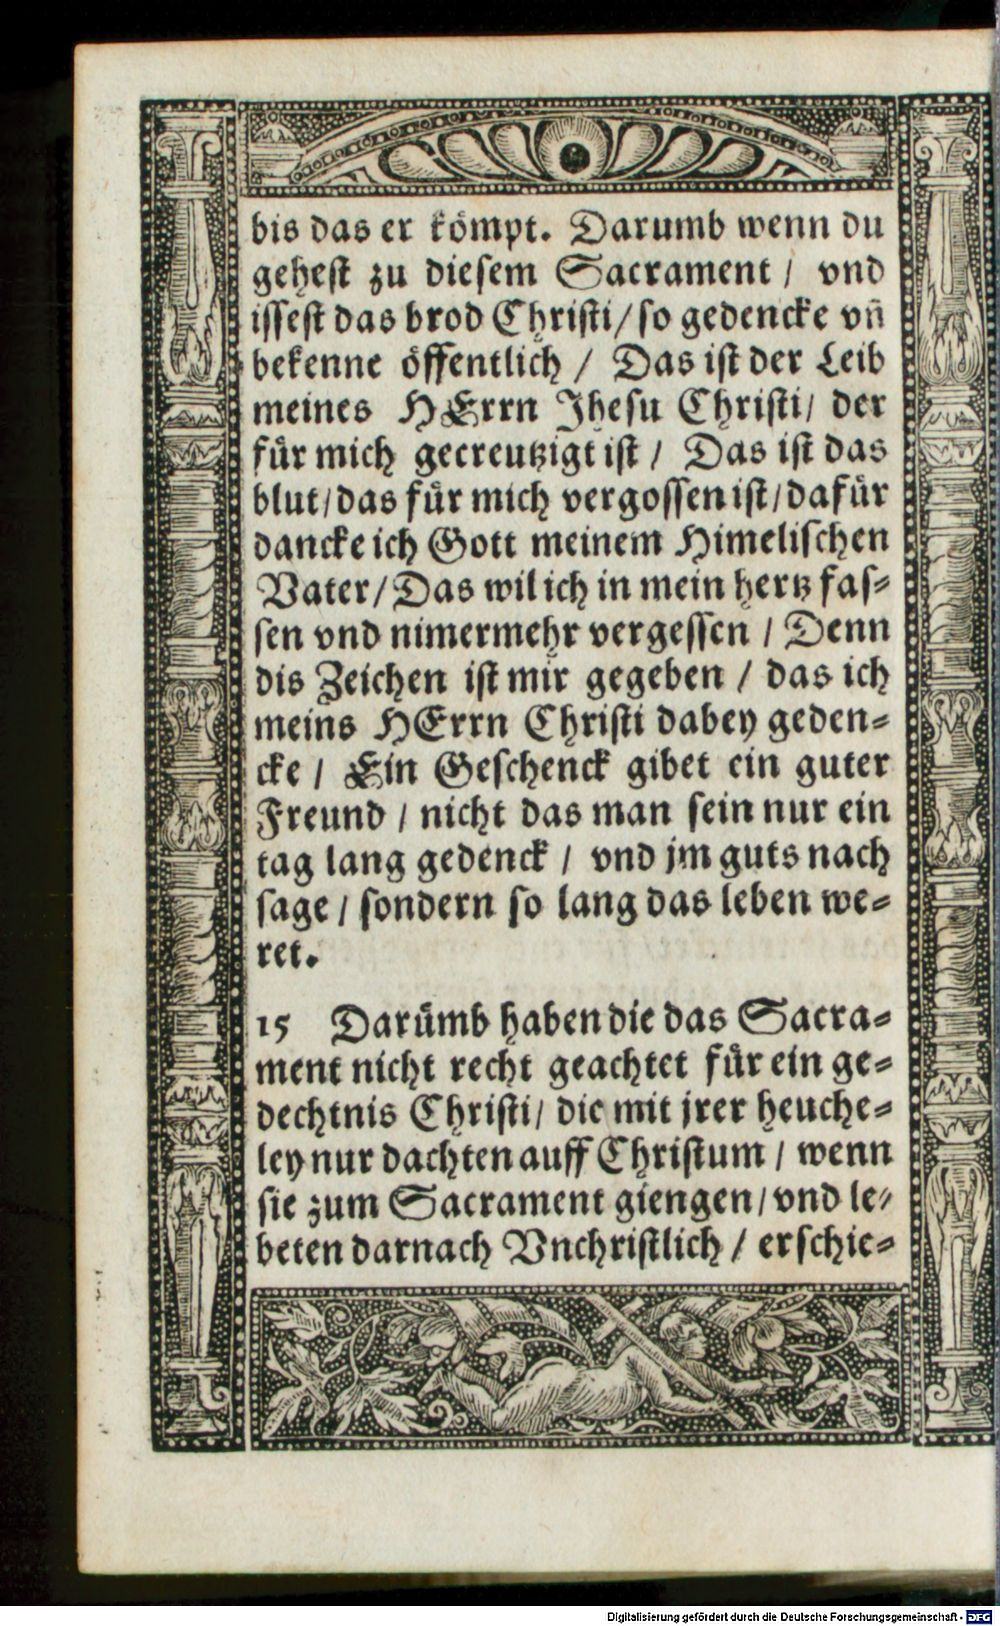 bis das er kömpt. Darumb wenn du
gehest zu diesem Sacrament / vnd
issest das brod Christi / so gedencke vñ
bekenne öffentlich / Das ist der Leib
meines HErrn Jhesu Christi / der
für mich gecreutzigt ist / Das ist das
blut / das für mich vergossen ist / dafür
dancke ich Gott meinem Himelischen
Vater / Das wil ich in mein hertz fas=
sen vnd nimermehr vergessen / Denn
dis Zeichen ist mir gegeben / das ich
meins HErrn Christi dabey geden=
cke / Ein Geschenck gibet ein guter
Freund / nicht das man sein nur ein
tag lang gedenck / vnd jm guts nach
sage / sondern so lang das leben we=
ret.
15 Darümb haben die das Sacra=
ment nicht recht geachtet für ein ge=
dechtnis Christi / die mit jrer heuche=
ley nur dachten auff Christum / wenn
sie zum Sacrament giengen / vnd le=
beten darnach Vnchristlich / erschie=
Digitalisierung gefördert durch die Deutsche Forschungsgemeinschaft - DFG